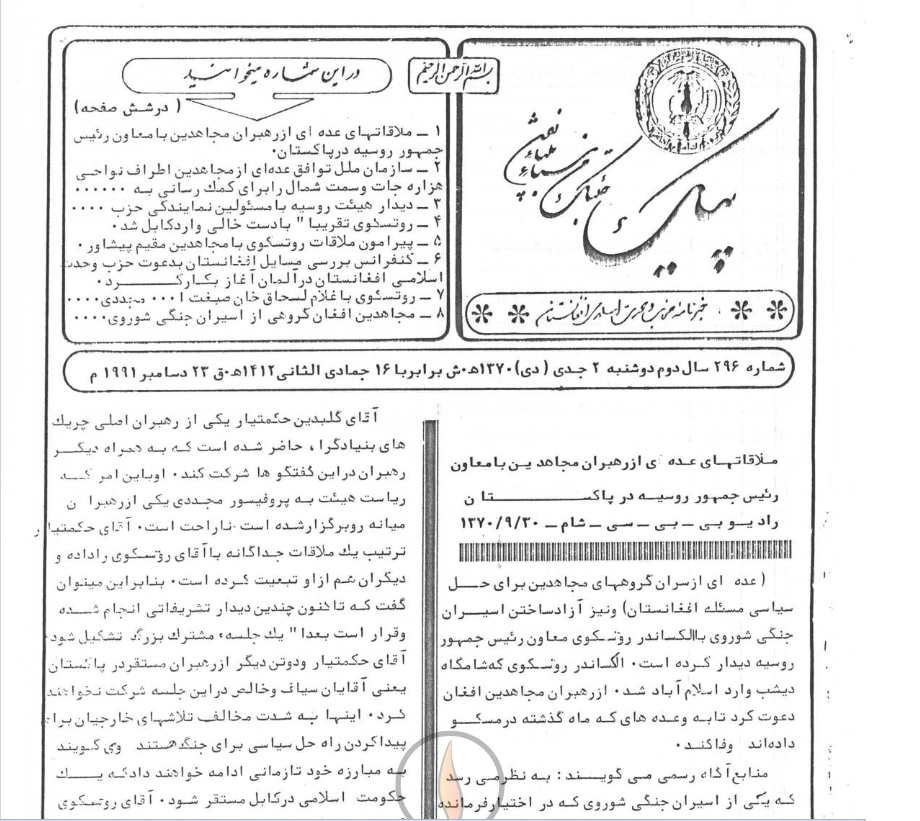 بسم الله الرحمن الرحیم
پیامی
خبرنامه حزب و حرکت اسلامی افغانستان
در این شماره میخوانید
( درشش صفحه)
۱ ــ ملاقاتهای عده ای ازرهبران مجاهدین بامعاون رئیس
جمهور روسیه درپاکستان۰
۲ ــ سازمان ملل توافق عده‌ای ازمجاهدین اطراف نواحی
هزاره جات وسمت شمال رابرای کمك رسانی به ۰۰۰۰۰۰
۳ ــ دیدار هیئت روسیه بامسئولین نمایندگی حزب ۰۰۰۰
۴ ــ روتسکوی تقریبا" بادست خالی واردکابل شد۰
۵ ــ پیرامون ملاقات روتسکوی بامجاهدین مقیم پیشاور۰
۶ ــ کنفرانس بررسی مسایل افغانستان بدعوت حزب وحدت
اسلامی افغانستان درآلمان آغاز بکارکــــرد۰
۷ ــ روتسکوی باغلام لسحاق خان صبغت ا۰۰۰ مجددی۰۰۰۰
۸ ــ مجاهدین افغان گروهی از اسیران جنگی شوروی۰۰۰۰
شماره ۲۹۶ سال دوم دوشنبه ۲ جدی (دی) ۱۳۷۰ه۰ش برابربا ۱۶ جمادی الثانی۱۴۱۲ه۰ق ۲۳ دسامبر ۱۹۹۱ م
ملاقاتهای عده ای ازرهبران مجاهدین بامعاون
رئیس جمهور روسیه در پاکســـــتان
رادیو بی ــ بی ــ سی ــ شام ــ ۱۳۷۰/۹/۳۰
(عده ای ازسران گروههای مجاهدین برای حـــل
سیاسی مسئله افغانستان) ونیز آزادساختن اسیــران
جنگی شوروی باالکساندر روتسکوی معاون رئیس جمهور
روسیه دیدار کرده است۰ الکساندر روتسکوی که‌شامگاه
دیشب وارد اسلام آباد شد۰ ازرهبران مجاهدین افغان
دعوت کرد تابه وعده های که ماه گذشته درمسکــو
داده‌اند وفاکند۰
منابع آگاه رسمی می گوینـــد: به نظرمی رسد
که یکی از اسیران جنگی شوروی که در اختیارفرمانده
آقای گلبدین حکمتیار یکی از رهبران اصلی چریك
های بنیادگرا، حاضر شده است که به همراه دیگــر
رهبران دراین گفتگو ها شرکت کند۰ اوباین امر کــه
ریاست هیئت به پروفیسور مجددی یکی ازرهبران
میانه روبرگزارشده است ناراحت است۰ آقای حکمتیار
ترتیب یك ملاقات جداگانه باآقای روتسکوی راداده و
دیگران هم ازاو تبعیت کرده است۰ بنابراین میتوان
گفت که تاکنون چندین دیدار تشریفاتی انجام شــده
وقرار است بعدا" یك جلسه مشترك بزرگ تشکیل شود۰
آقای حکمتیار ودوتن دیگر ازرهبران مستقردر پاکستان
یعنی آقایان سیاف وخالص دراین جلسه شرکت نخواهند
کرد۰ اینها به شدت مخالف تلاشهای خارجیان برای
پیداکردن راه حل سیاسی برای جنگ هستند وی گویند
به مبارزه خود تازمانی ادامه خواهند دادکه یـــك
حکومت اسلامی درکابل مستقر شود۰ آقای روتسکوی